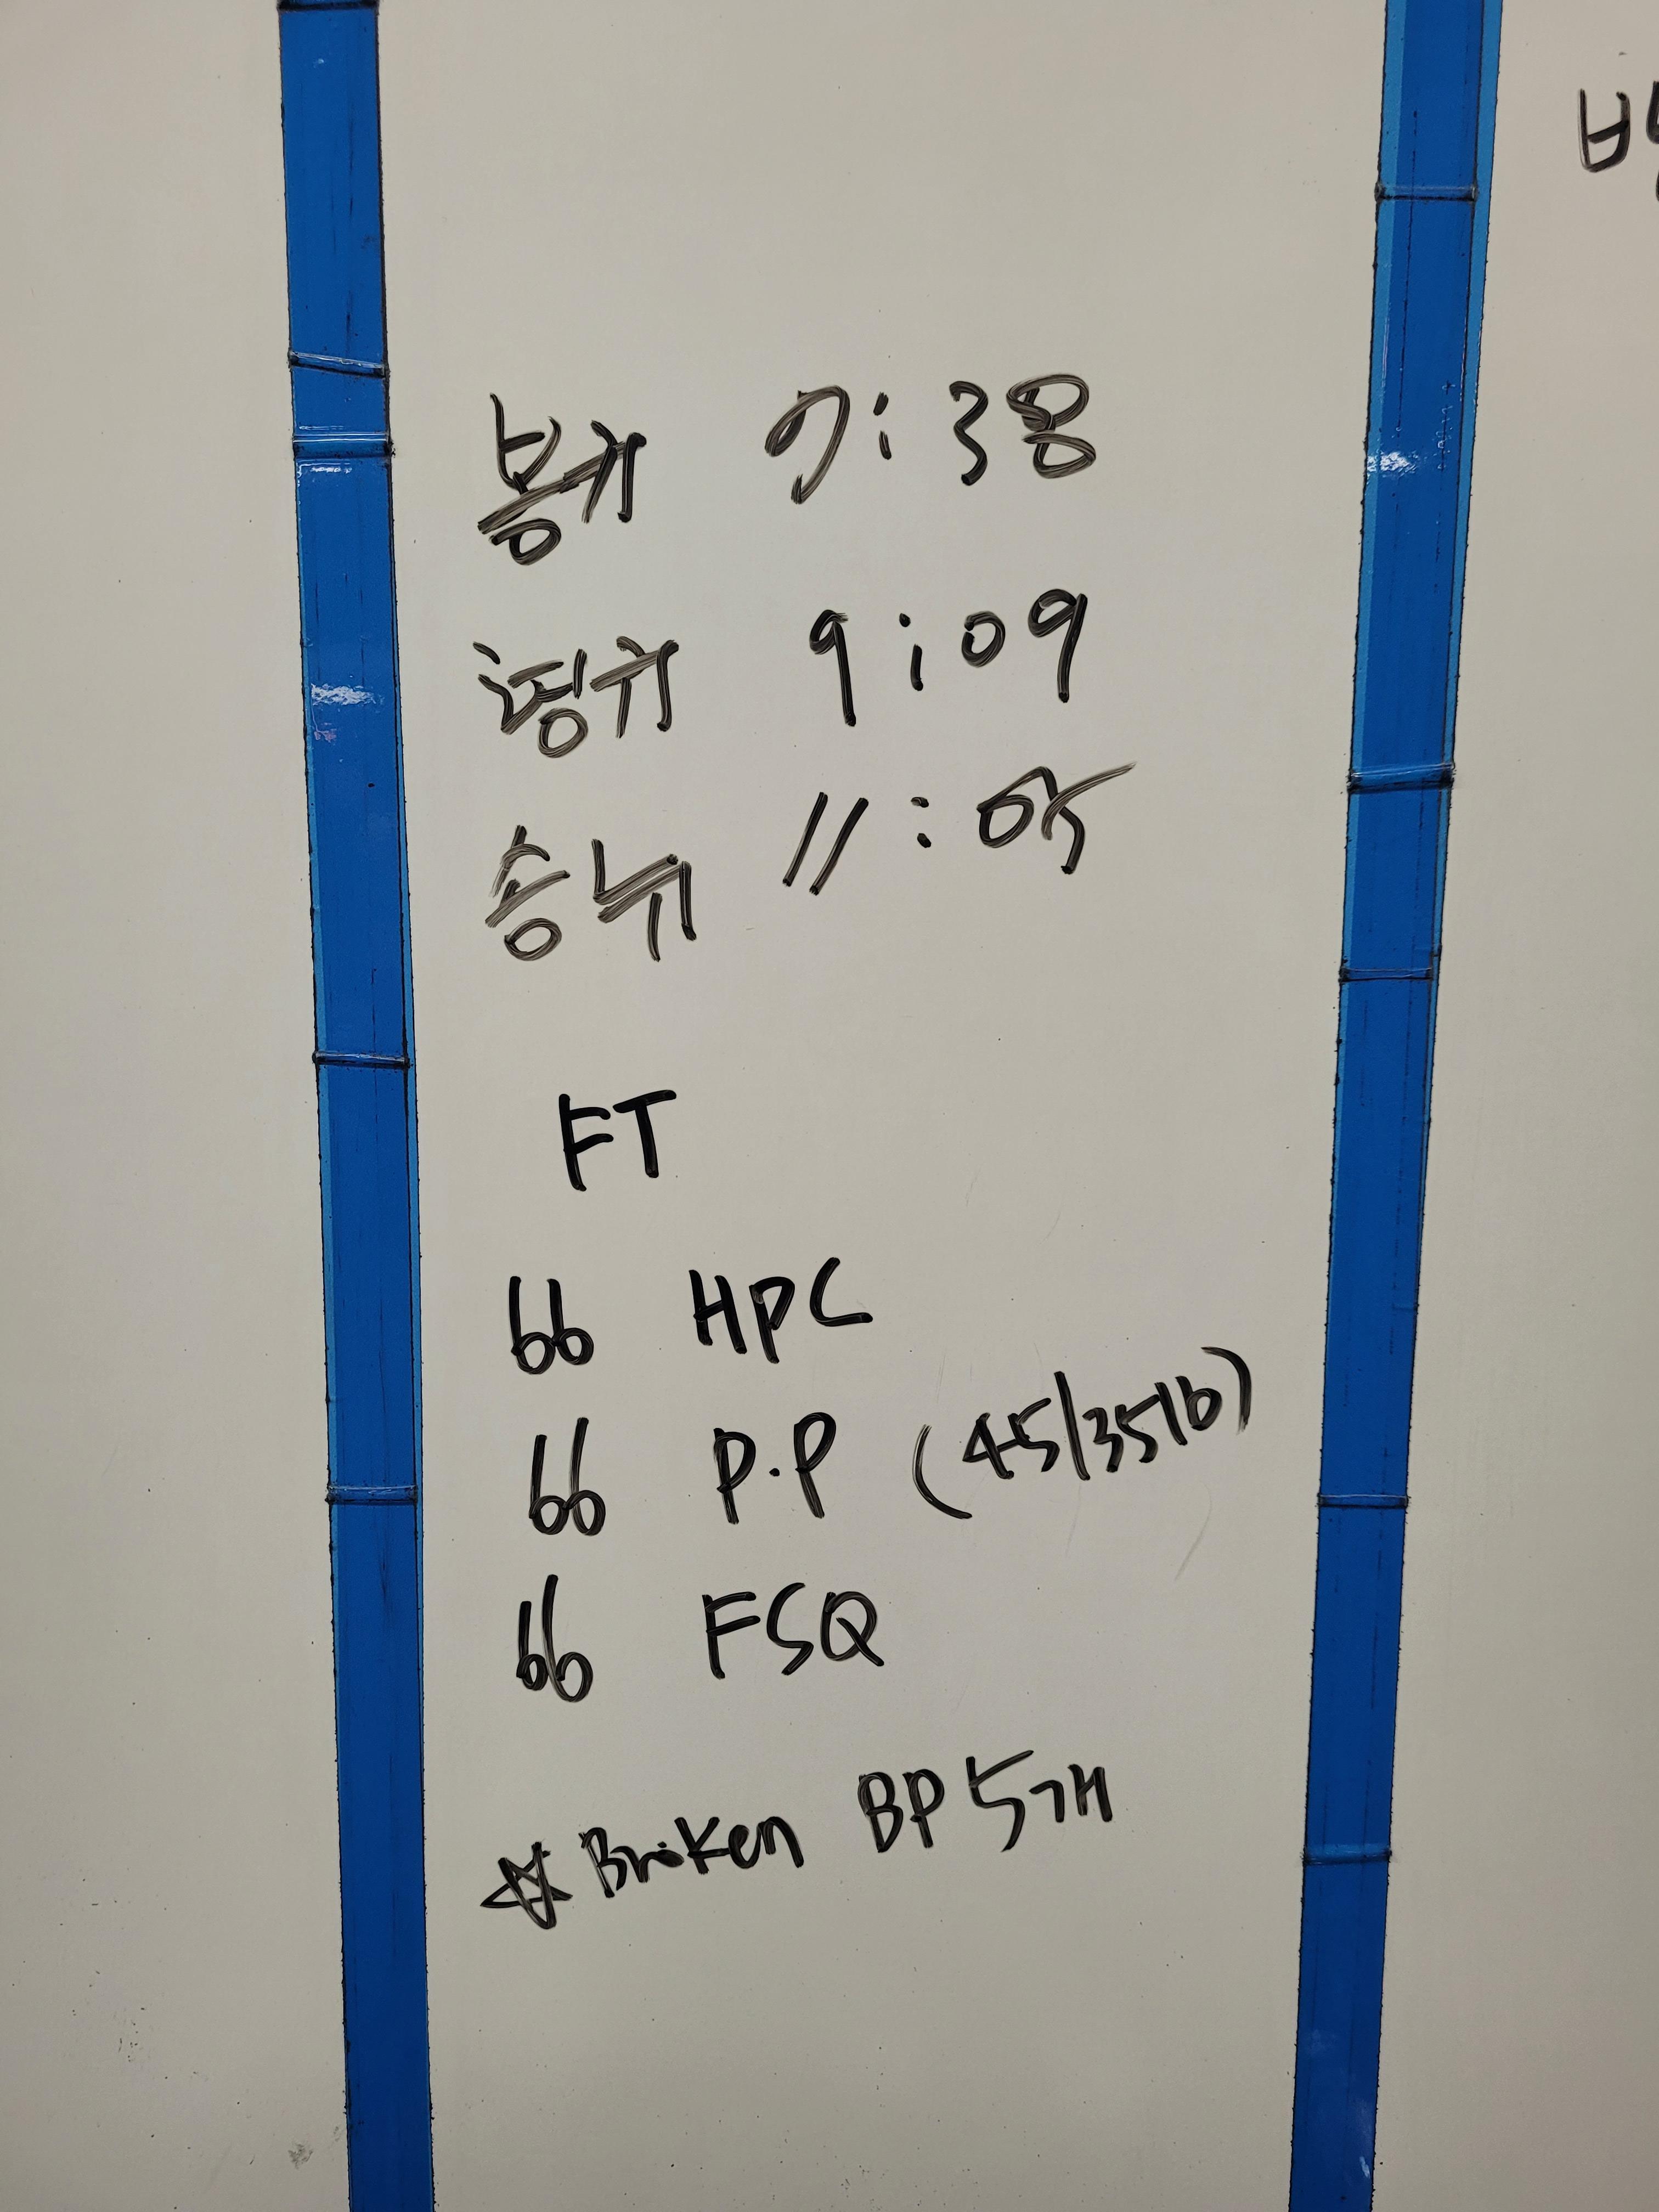 봉귀 7:38
형규 9:09
승뉘 11:05
FT
66 HPC
66 P.P (45/35lb)
66 FSQ
☆ Broken BP 5개